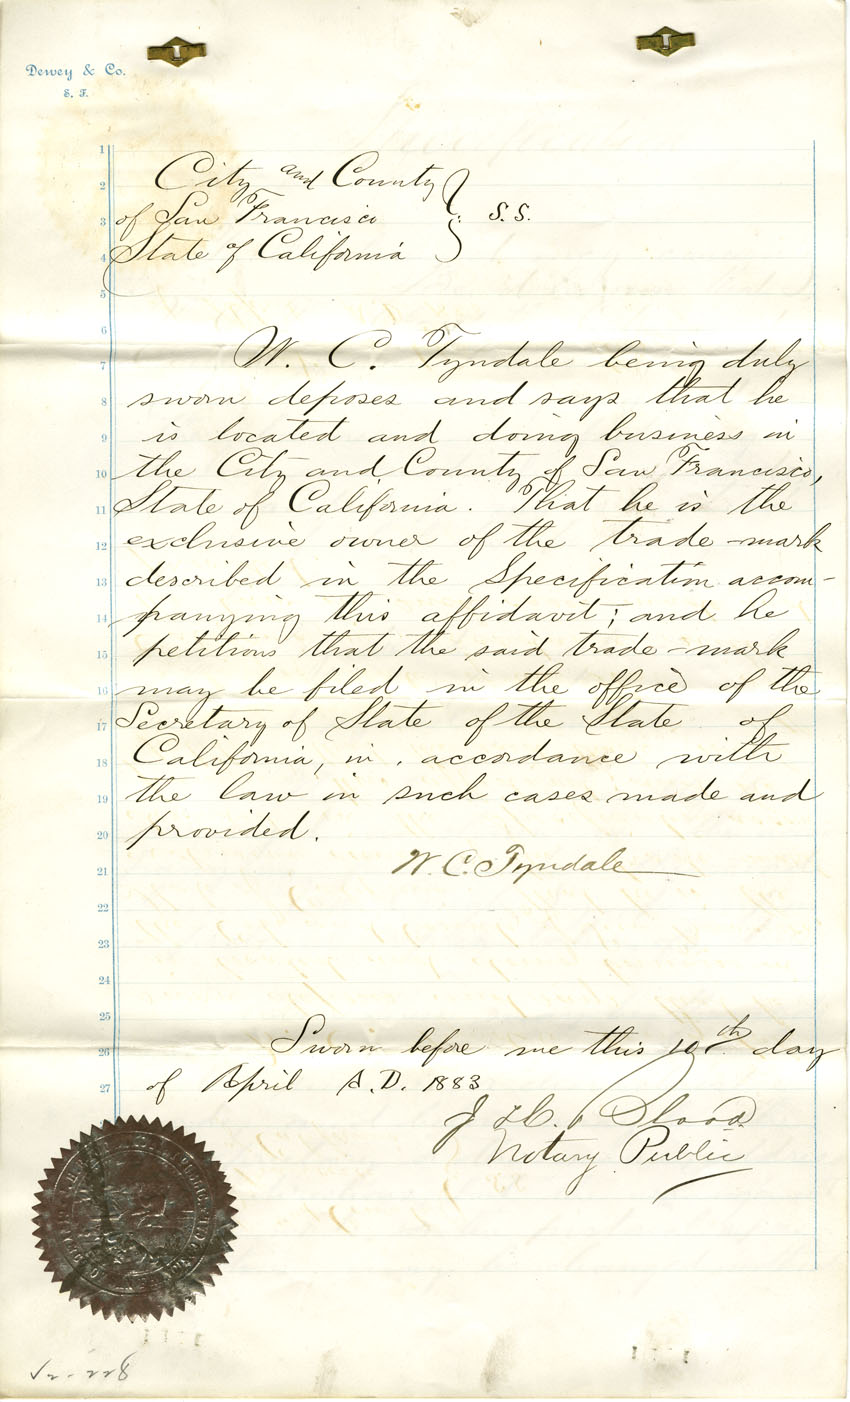 Dewey & Co.
S. F.
City and County
of San Francisco } S.S.
State of California
W. C. Tyndale being duly
sworn deposes and says that he
is located and doing business in
the City and County of San Francisco,
State of California. That he is the
exclusive owner of the trade-mark
described in the Specification accom-
panying this affidavit; and he
petitions that the said trade-mark
may be filed in the office of the
Secretary of State of the State of
California, in accordance with
the law in such cases made and
provided.
W. C. Tyndale
Sworn before me this 10th day
of April A.D. 1883
J. H. Blood
Notary Public